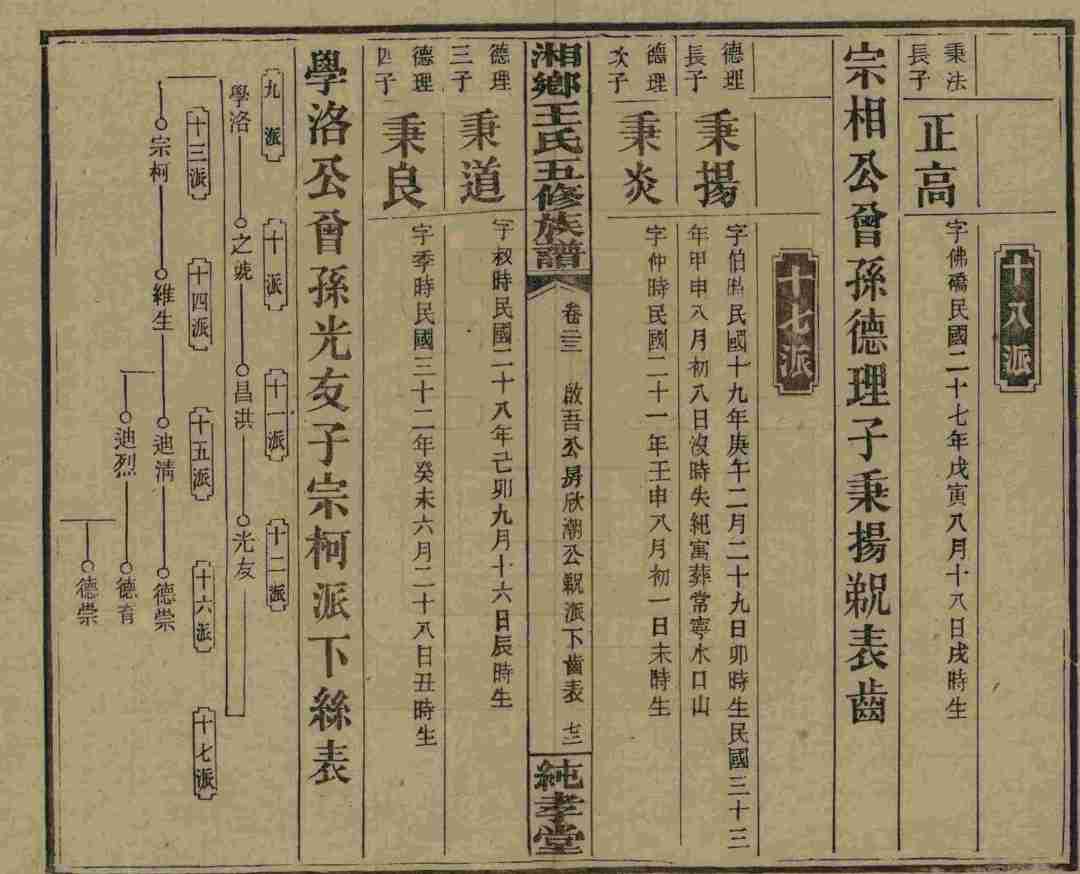 十八派
秉法長子
正高
字佛礄民國二十七年戊寅八月十八日戌時生
宗相公曾孫德理子秉揚覩表齒
十七派
德理長子
秉揚
字伯時民國十九年庚午二月二十九日卯時生民國三十三
年甲申八月初八日沒時失紀寓葬常寧水口山
德理次子
秉炎
字仲時民國二十一年壬申八月初一日未時生
湘鄉王氏五修族譜
卷三三
啟吾公房欣潮公覩派下齒表
七三
純孝堂
德理三子
秉道
字叔時民國二十八年己卯九月十六日辰時生
德理四子
秉良
字季時民國三十二年癸未六月二十八日丑時生
學洛公曾孫光友子宗柯派下絲表
九派
十派
十一派
十二派
學洛
之號
昌洪
光友
十三派
十四派
十五派
十六派
十七派
宗柯
維生
迪清
德崇
迪烈
德育
德崇